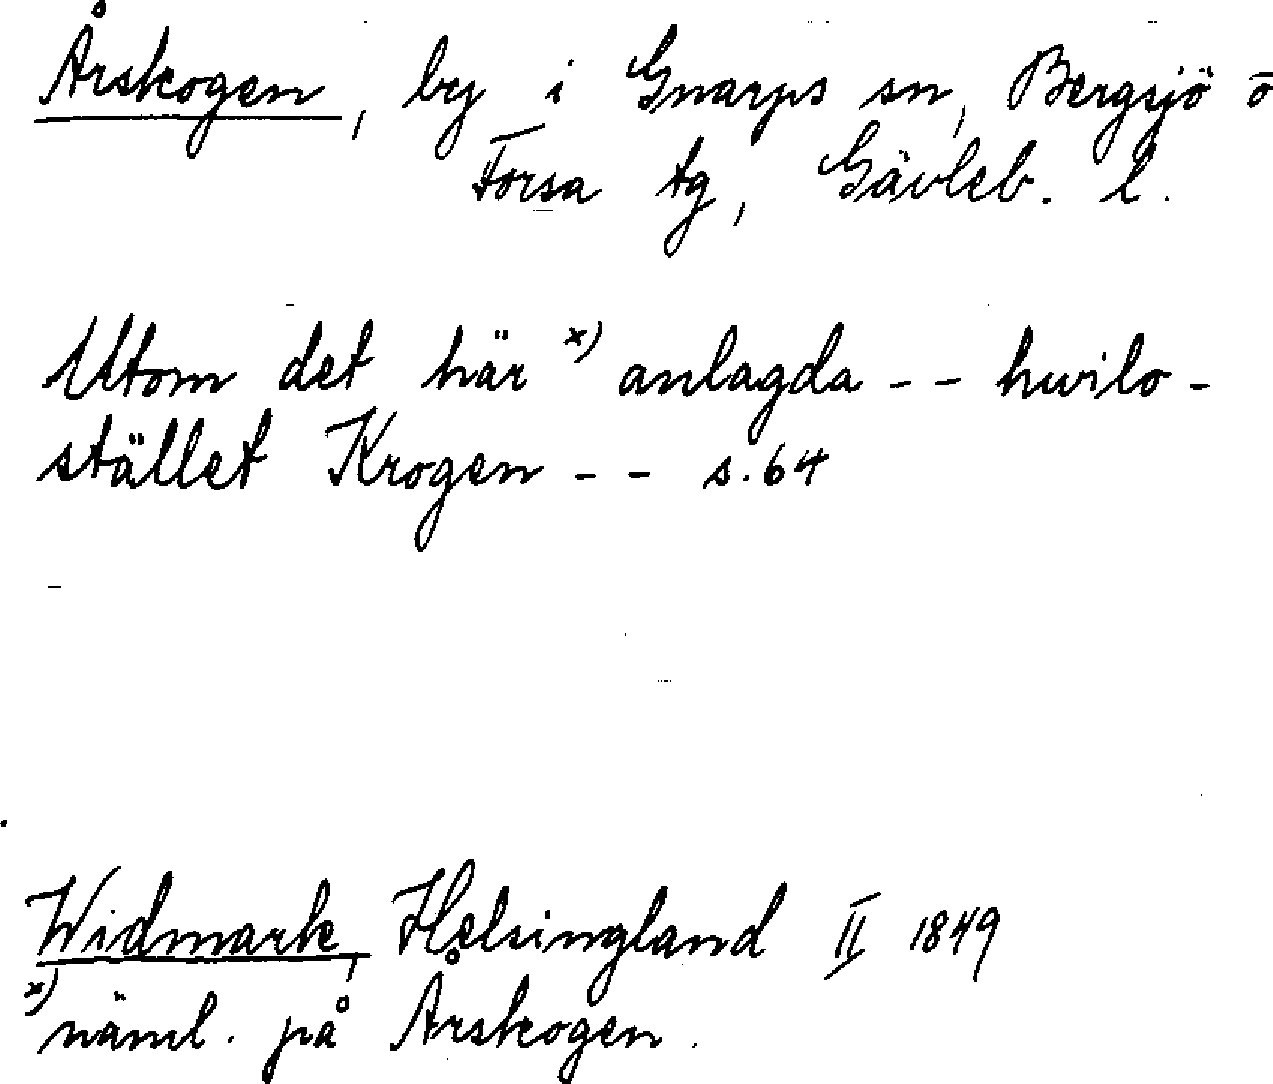 Årskogen, by i Gnarps sn, Bergsjö o
Forsa tg, Gävleb. l.
Utom det här x) anlagda - - hvilo-
stället Krogen - - s. 64
Widmark, Helsingland II 1849
x) näml. på Årskogen.